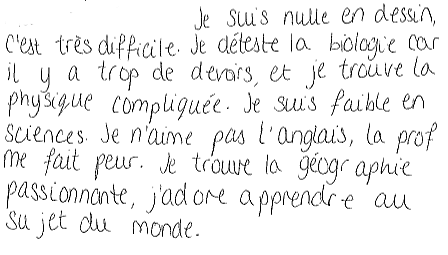 Je suis nulle en dessin,
c'est très difficile. Je déteste la biologie car
il y a trop de devoirs, et je trouve la
physique compliquée. Je suis faible en
sciences. Je n'aime pas l'anglais, la prof
me fait peur. Je trouve la géographie
passionnante, j'adore apprendre au
sujet du monde.